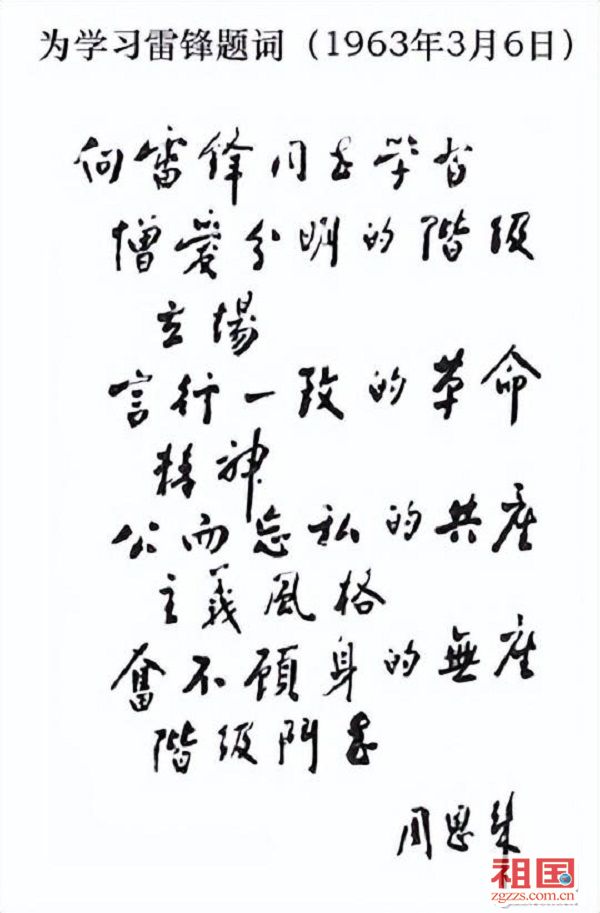 为学习雷锋题词（1963年3月6日）
向雷锋同志学习
憎爱分明的階级
立場
言行一致的革命
精神
公而忘私的共産
主義風格
奮不顧身的無産
階级鬥志
周恩来
祖国
zgzzs.com.cn